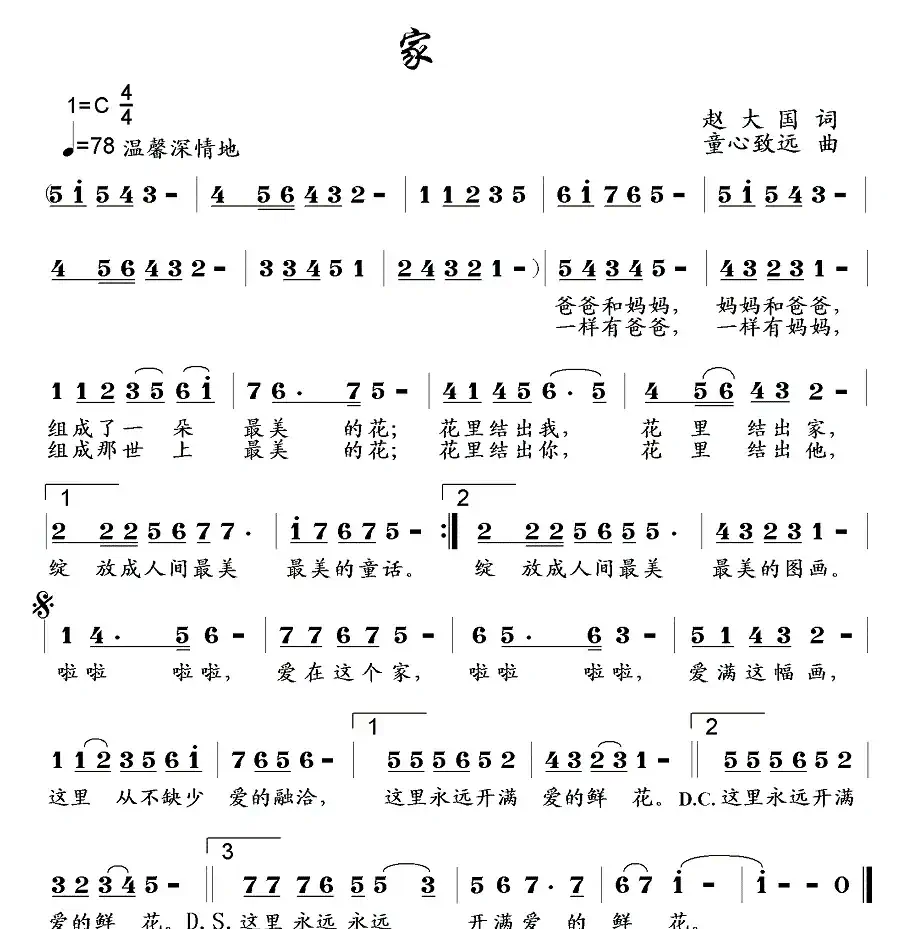 家
1=C 4/4
=78 温馨深情地
赵大国 词
童心致远 曲
(5 i 5 4 3 - | 4 5 6 4 3 2 - | 1 1 2 3 5 | 6 i 7 6 5 - | 5 i 5 4 3 - |
4 5 6 4 3 2 - | 3 3 4 5 1 | 2 4 3 2 1 - ) | 5 4 3 4 5 - | 4 3 2 3 1 - |
爸爸和妈妈, 妈妈和爸爸,
一样有爸爸, 一样有妈妈,
1 1 2 3 5 6 i | 7 6 . 7 5 - | 4 1 4 5 6 . 5 | 4 5 6 4 3 2 - |
组成了一 朵 最美 的花; 花里结出我, 花 里 结出家,
组成那世 上 最美 的花; 花里结出你, 花 里 结出他,
1 2
| 2 2 2 5 6 7 7 . | i 7 6 7 5 - :| 2 2 2 5 6 5 5 . | 4 3 2 3 1 - |
绽 放成人间最美 最美的童话。 绽 放成人间最美 最美的图画。
| 1 4 . 5 6 - | 7 7 6 7 5 - | 6 5 . 6 3 - | 5 1 4 3 2 - |
啦啦 啦啦, 爱在这个家, 啦啦 啦啦, 爱满这幅画,
1 2
1 1 2 3 5 6 i | 7 6 5 6 - | 5 5 5 6 5 2 | 4 3 2 3 1 - || 5 5 5 6 5 2 |
这里 从不缺少 爱的融洽, 这里永远开满 爱的鲜 花。D.C.这里永远开满
3
3 2 3 4 5 - || 7 7 7 6 5 5 3 | 5 6 7 . 7 | 6 7 i - | i - - 0 ||
爱的鲜 花。D.S.这里永远永远 开满爱 的 鲜 花。